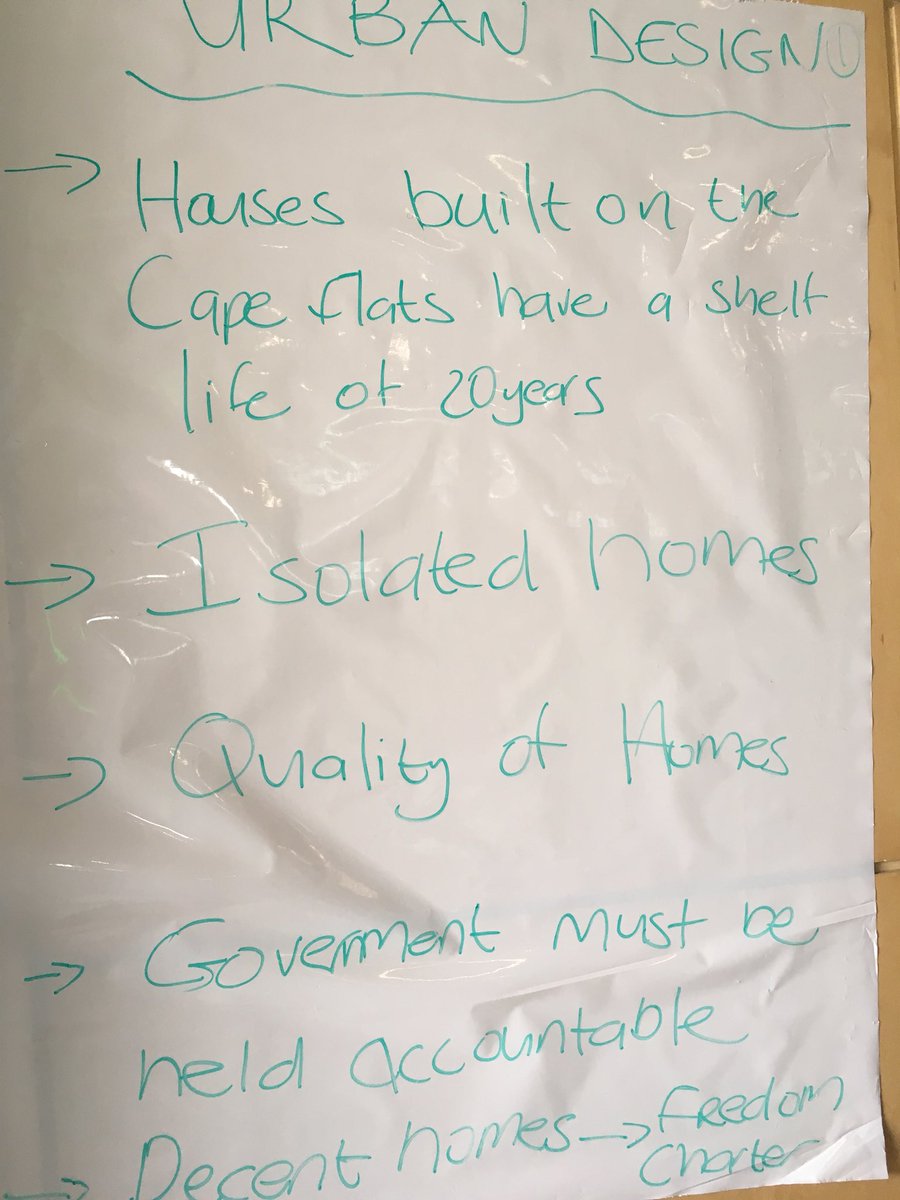 URBAN DESIGN ①
→ Houses built on the
Cape flats have a shelf
life of 20years
→ Isolated homes
→ Quality of Homes
→ Government must be
held accountable
→ Decent homes → Freedom
Charter